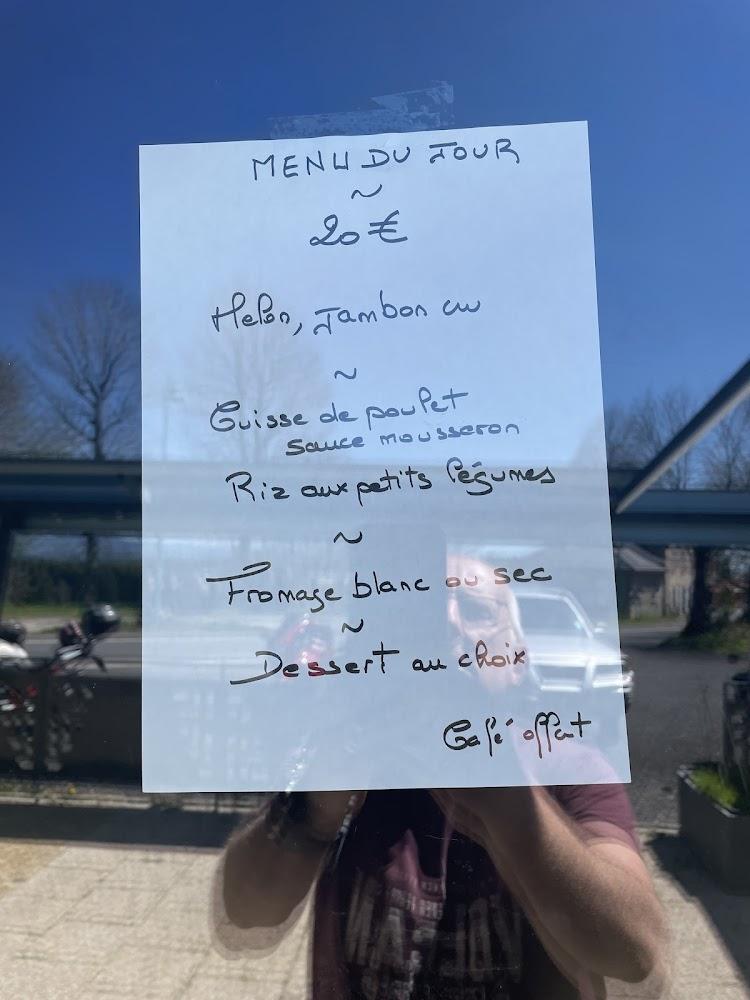 MENU DU JOUR
~
20€
Melon, Jambon cru
~
Cuisse de poulet
sauce mousseron
Riz aux petits légumes
~
Fromage blanc ou sec
~
Dessert au choix
Café offert